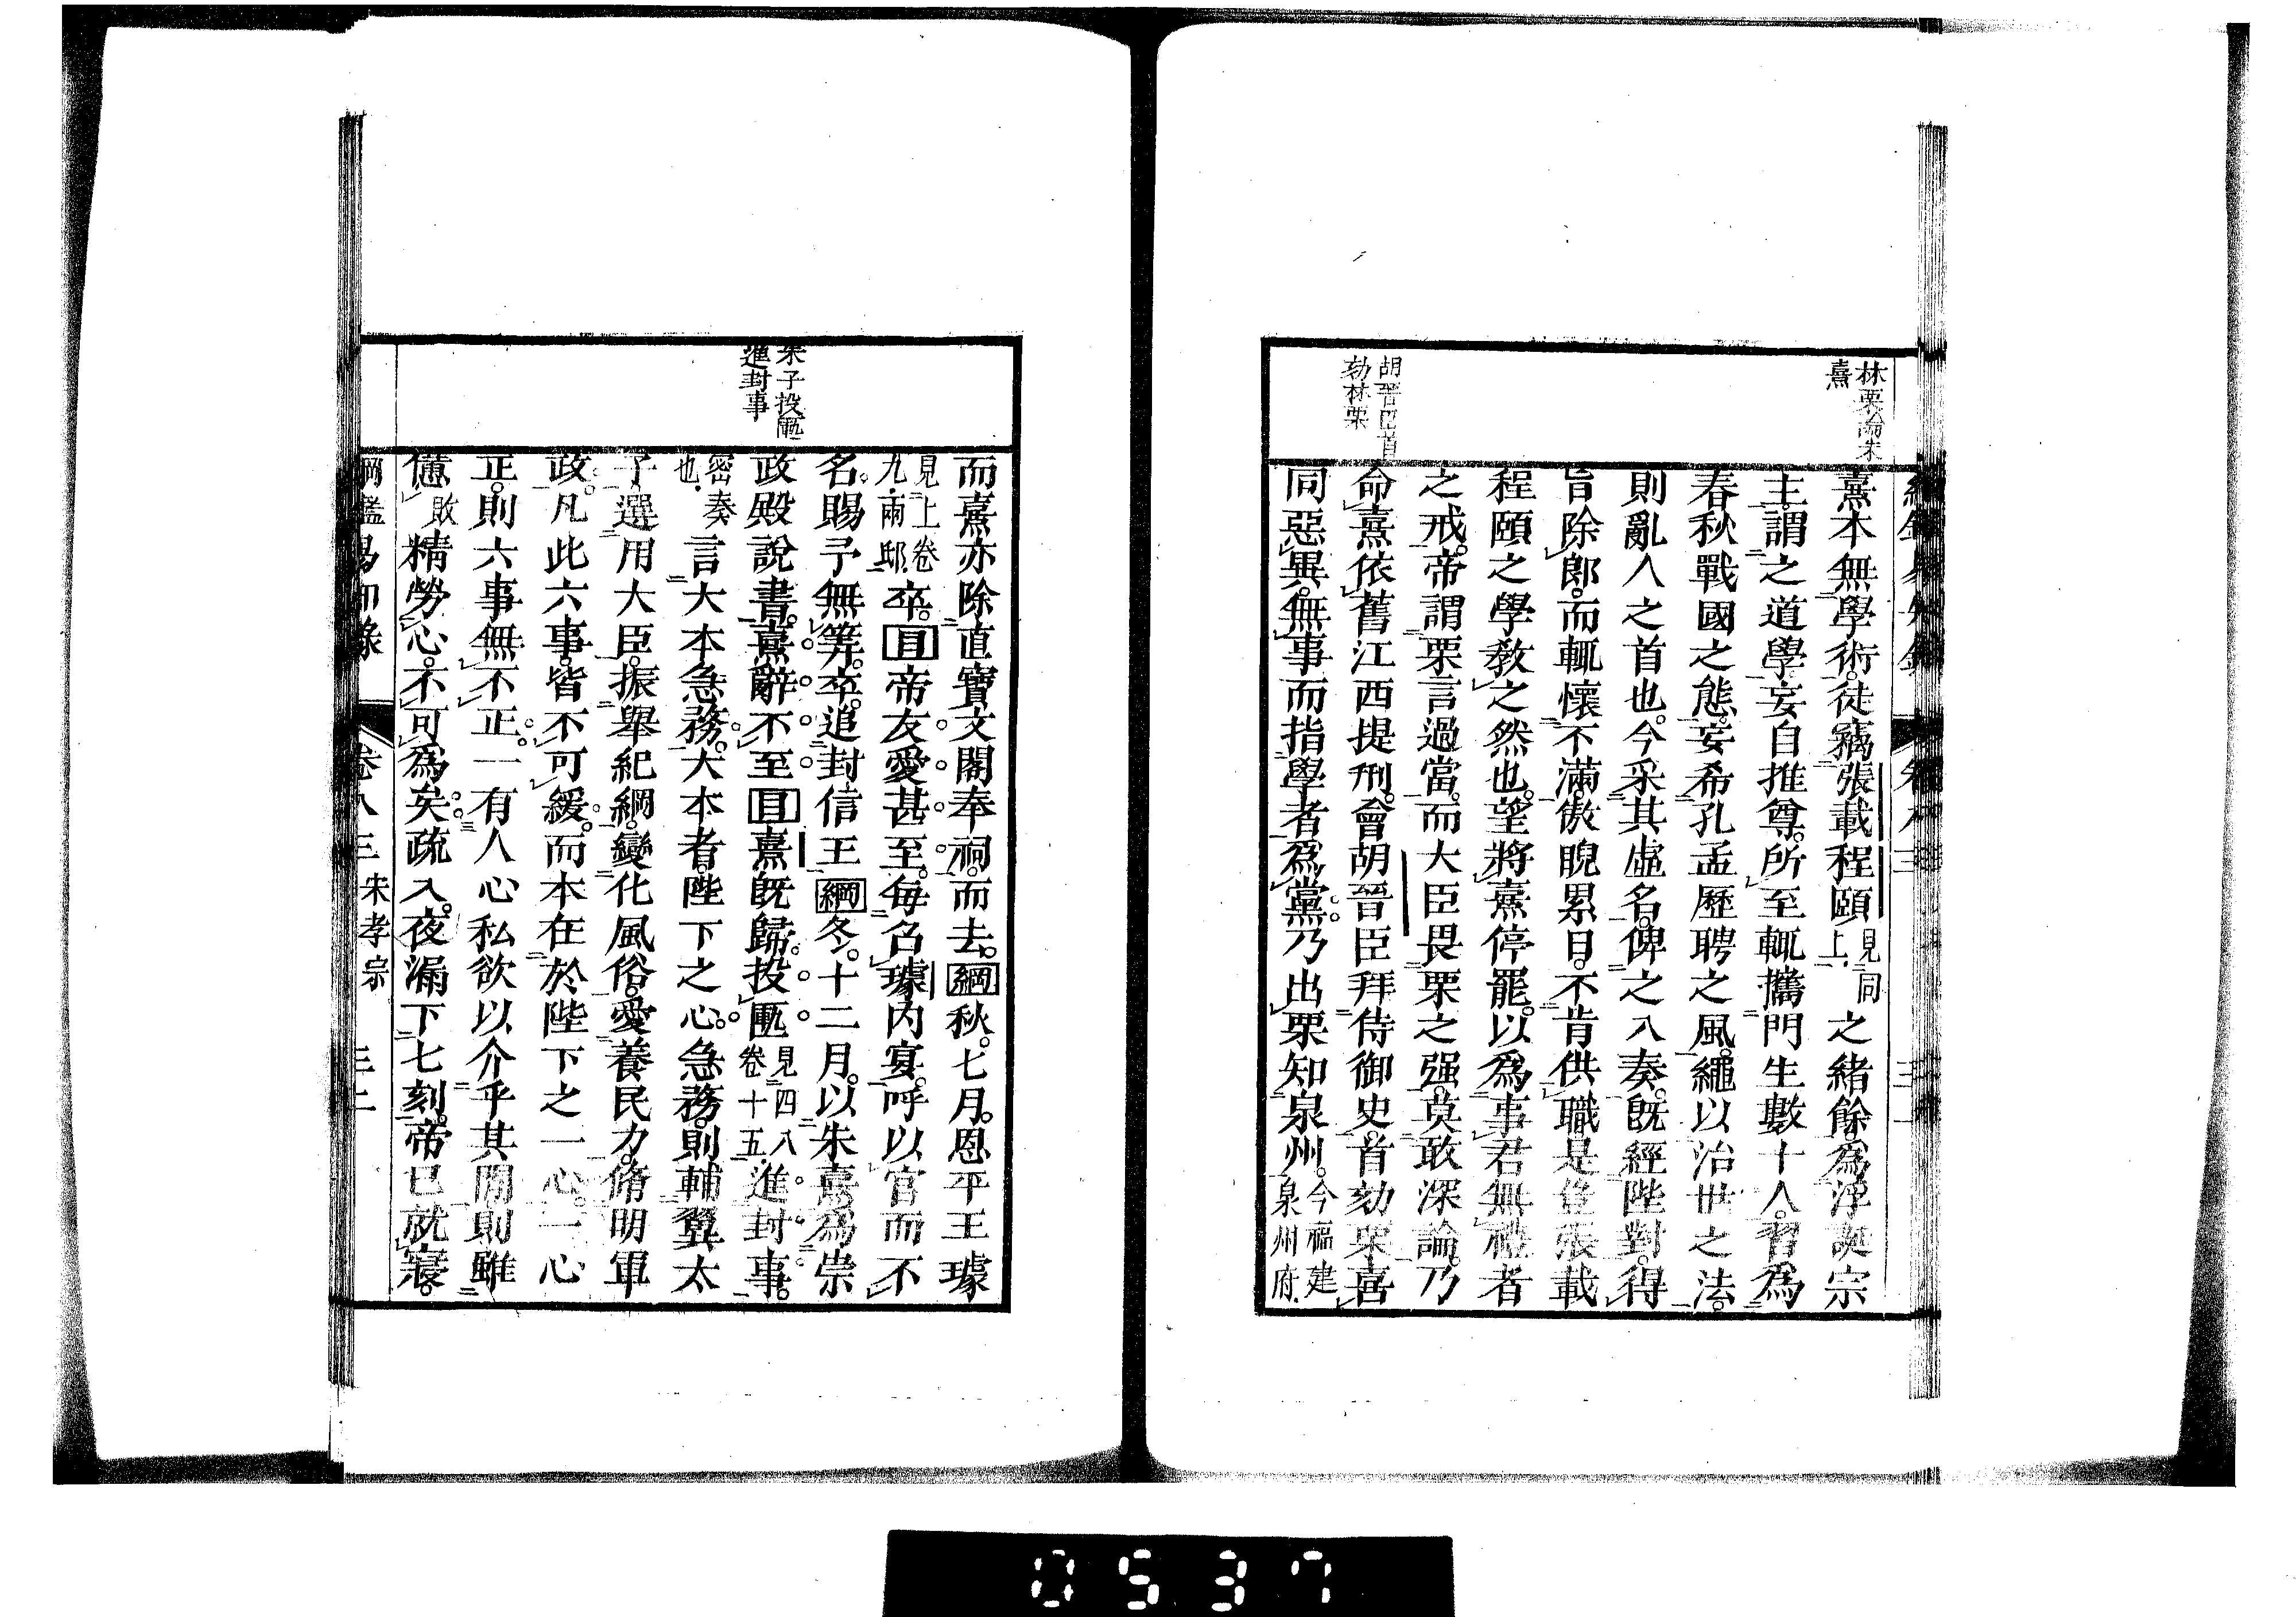 林栗論朱
熹
熹本無學術。徒竊張載程頤見同上.之緒餘。爲浮誕宗
主。謂之道學。妄自推尊。所至輒攜門生數十人。習爲
春秋戰國之態。妄希孔孟歷聘之風。繩以治世之法。
則亂人之首也。今采其虛名。俾之入奏。旣經陛對。得
旨除郎。而輒懷不滿。傲睨累日。不肯供職。是豈張載
程頤之學敎之然也。望將熹停罷。以爲事君無禮者
之戒。帝謂栗言過當。而大臣畏栗之强。莫敢深論。乃
命熹依舊江西提刑。會胡晉臣拜侍御史。首劾栗喜
同惡異。無事而指學者爲黨。乃出栗知泉州。今福建泉州府.
胡晉臣首
劾林栗
而熹亦除直寶文閣奉祠。而去。綱秋。七月。恩平王璩
見上卷九.兩邸.卒。目帝友愛甚至。每召璩內宴。呼以官而不
名。賜予無筭。卒。追封信王綱冬。十二月。以朱熹爲崇
政殿說書。熹辭不至目熹旣歸。投匭見四八卷十五.進封事。
密奏也.言大本急務。大本者。陛下之心。急務。則輔翼太
子。選用大臣。振舉紀綱。變化風俗。愛養民力。脩明軍
政。凡此六事。皆不可緩。而本在於陛下之一心。一心
正。則六事無不正。一有人心私欲以介乎其間。則雖
憊敗精勞心。不可爲矣。疏入。夜漏下七刻。帝已就寢。
朱子投匭
進封事
綱鑑易知錄 卷八三 宋孝宗 三二
0537